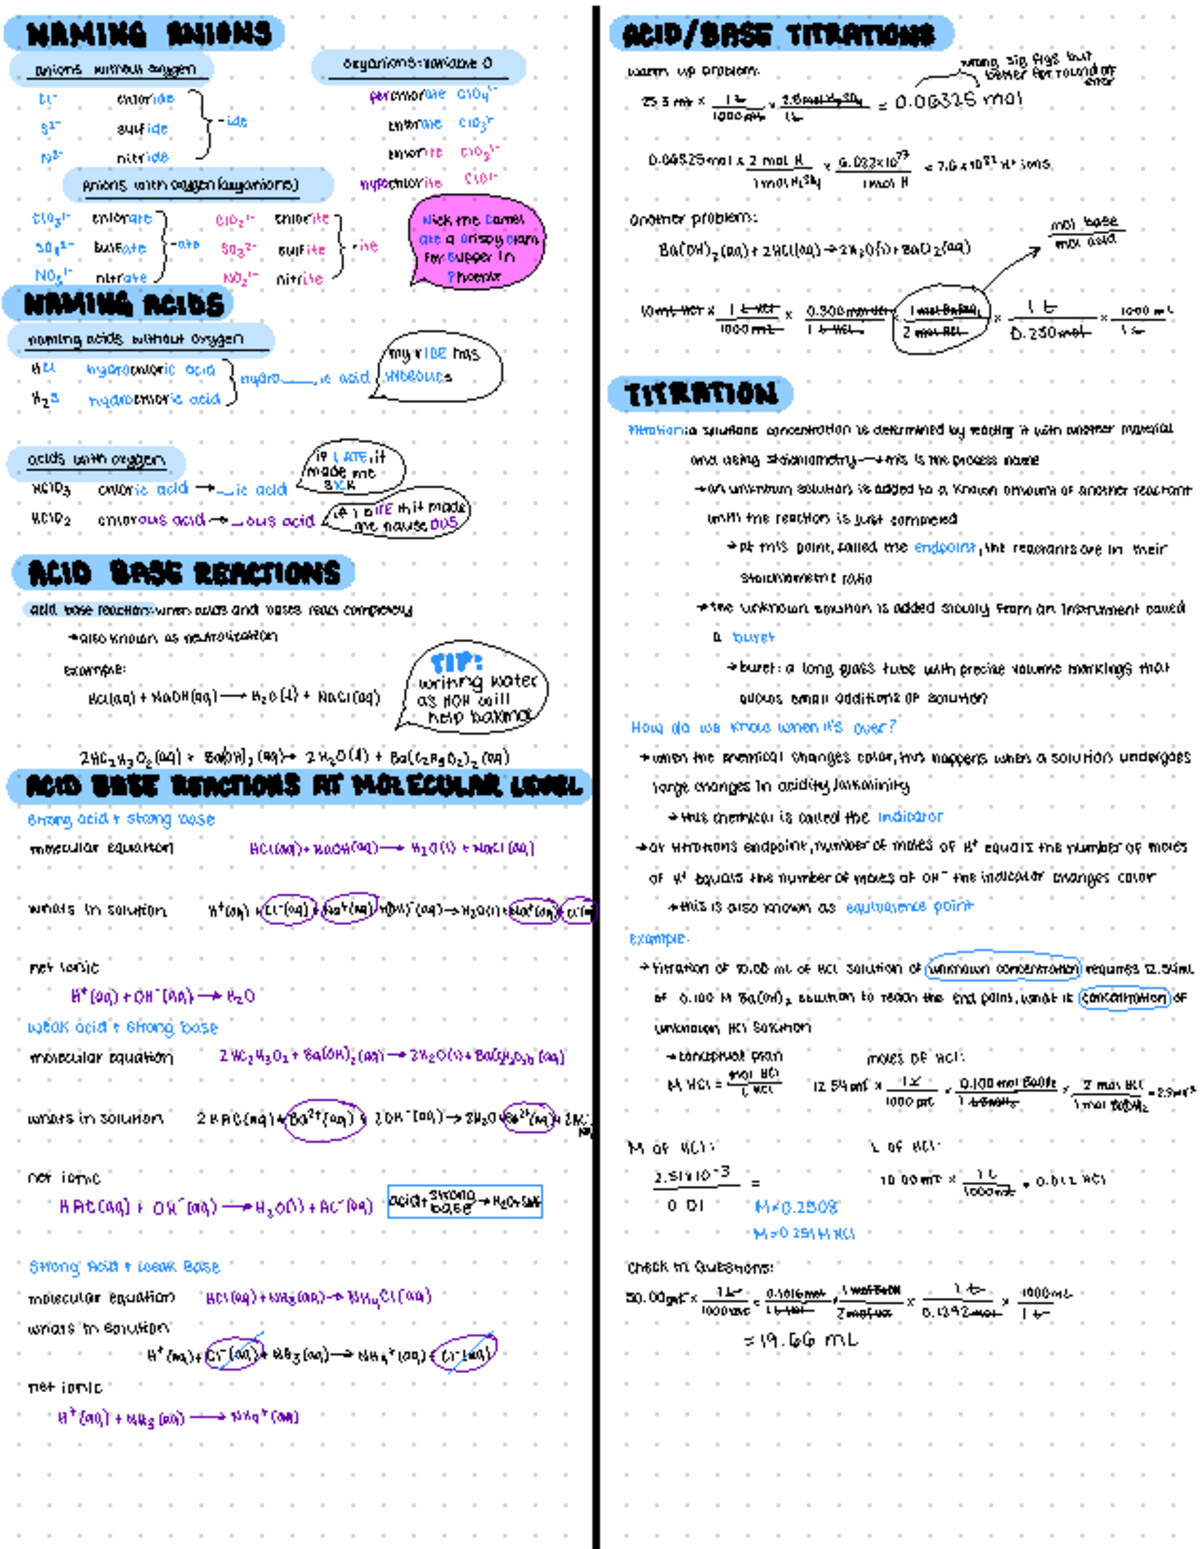 NAMING ANIONS
anions without oxygen
Cl⁻ chloride
S²⁻ sulfide -ide
N³⁻ nitride
oxyanions: variable O
perchlorate ClO₄¹⁻
chlorate ClO₃¹⁻
chlorite
hypochlorite ClO¹⁻
Anions with oxygen (oxyanions)
ClO₃¹⁻ chlorate ClO₂¹⁻ chlorite
SO₄²⁻ sulfate -ate SO₃²⁻ sulfite -ite
NO₃¹⁻ nitrate NO₂¹⁻ nitrite
Nick the Camel
ate a Crispy Clam
for Supper in
Phoenix
NAMING ACIDS
naming acids without oxygen
HCl hydrochloric acid hydro___ic acid
H₂S hydrochloric acid
my rIDE has
HYDROLICs
acids with oxygen
HClO₃ chloric acid → __ic acid
if I ATE it
made me
sICK
HClO₂ chlorous acid → __ous acid
me nauseOUS
ACID BASE REACTIONS
acid base reaction: when acids and bases react completely
→also known as neutralization
example:
HCl(aq) + NaOH(aq) → H₂O(l) + NaCl(aq)
TIP:
writing water
as HOH will
help balance
2HC₂H₃O₂(aq) + Ba(OH)₂(aq) → 2H₂O(l) + Ba(C₂H₃O₂)₂(aq)
ACID BASE REACTIONS AT MOLECULAR LEVEL
Strong acid + strong base
molecular equation HCl(aq) + NaOH(aq) → H₂O(l) + NaCl(aq)
whats in solution H⁺(aq) + Cl⁻(aq) + Na⁺(aq) + OH⁻(aq) → H₂O(l) + Na⁺(aq) + Cl⁻(aq
net ionic
H⁺(aq) + OH⁻(aq) → H₂O
weak acid + strong base
molecular equation 2HC₂H₃O₂ + Ba(OH)₂(aq) → 2H₂O(l) +
whats in solution 2HAC(aq) + Ba²⁺(aq) + 2OH⁻(aq) → 2H₂O + Ba²⁺(aq) + 2AC⁻
net ionic
HAC(aq) + OH⁻(aq) → H₂O(l) + AC⁻(aq)
acid + strong base → H₂O + salt
Strong Acid + Weak Base
molecular equation HCl(aq) + NH₃(aq) → NH₄Cl(aq)
whats in solution
H⁺(aq) + Cl⁻(aq) + NH₃(aq) → NH₄⁺(aq) + Cl⁻(aq)
net ionic
H⁺(aq) + NH₃(aq) → NH₄⁺(aq)
ACID/BASE TITRATIONS
warm up problem:
wrong sig figs but
better for round off
error
25.3 mL × 1 L / 1000 mL × 2.5 mol H₂SO₄ / 1 L = 0.06325 mol
0.06325 mol × 2 mol H / 1 mol H₂SO₄ × 6.022×10²³ / 1 mol H = 7.6×10²² H⁺ ions
another problem:
Ba(OH)₂(aq) + 2HCl(aq) → 2H₂O(l) + BaCl₂(aq)
mol base
mol acid
10 mL HCl × 1 L HCl / 1000 mL × 0.300 mol HCl / 1 L HCl × / 2 mol HCl × 1 L / 0.250 mol × 1000 mL / 1 L
TITRATION
titration: a solutions concentration is determined by reacting it with another material
and using stoichiometry → this is the process name
→an unknown solution is added to a known amount of another reactant
until the reaction is just completed
→at this point, called the endpoint, the reactants are in their
stoichiometric ratio
→the unknown solution is added slowly from an instrument called
a buret
→buret: a long glass tube with precise volume markings that
allows small additions of solution
How do we know when it's over?
→when the chemical changes color, this happens when a solution undergoes
large changes in acidity/alkalinity
→this chemical is called the indicator
→at titrations endpoint, number of moles of H⁺ equals the number of moles
of H⁺ equals the number of moles of OH⁻ the indicator changes color
→this is also known as equivalence point
example:
→titration of 10.00 mL of HCl solution of unknown concentration requires 12.54mL
of 0.100 M Ba(OH)₂ solution to reach the end point, what is concentration of
unknown HCl solution
→conceptual plan moles of HCl:
M HCl = mol HCl / L HCl
12.54 mL × 1 L / 1000 mL × 0.100 mol / × 2 mol HCl / 1 mol
M of HCl: L of HCl:
2.51×10⁻³ / 0.01 =
10.00 mL × 1 L / 1000 mL
M=0.2508
M=0.251 M HCl
Check in Questions:
50.00 mL × 1 L / 1000 mL × 0.1016 mol / × × 1 L / 0.1292 mol × 1000 mL / 1 L
= 19.66 mL